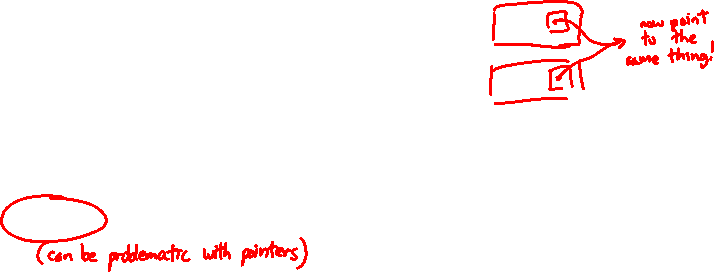 now point
to the
same thing!
(can be problematic with pointers)